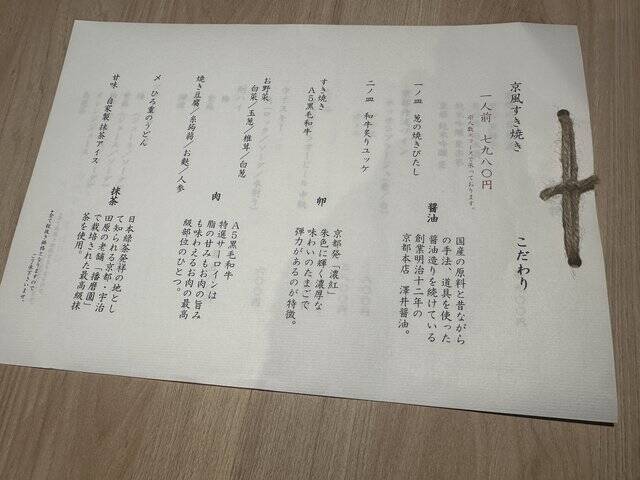 京風すき焼き
一人前 七九八〇円
一ノ皿 葱の焼きびたし
二ノ皿 和牛炙りユッケ
すき焼き
A5黒毛和牛
お野菜
白菜／玉葱／椎茸／白葱
焼き豆腐／糸蒟蒻／お麩／人参
〆 ひろ重のうどん
甘味 自家製 抹茶アイス
こだわり
醤油
国産の原料と昔ながら
の手法、道具を使った
醤油造りを続けている
創業明治十二年の
京都本店 澤井醤油。
卵
京都発「濃紅」
朱色に輝く濃厚な
味わいのたまごで
弾力があるのが特徴。
肉
A5黒毛和牛
特選サーロインは
脂の甘みもお肉の旨み
も味わえるお肉の最高
級部位のひとつ。
抹茶
日本緑茶発祥の地とし
て知られる京都・宇治
田原の老舗「播磨園」
で栽培された最高級抹
茶を使用。